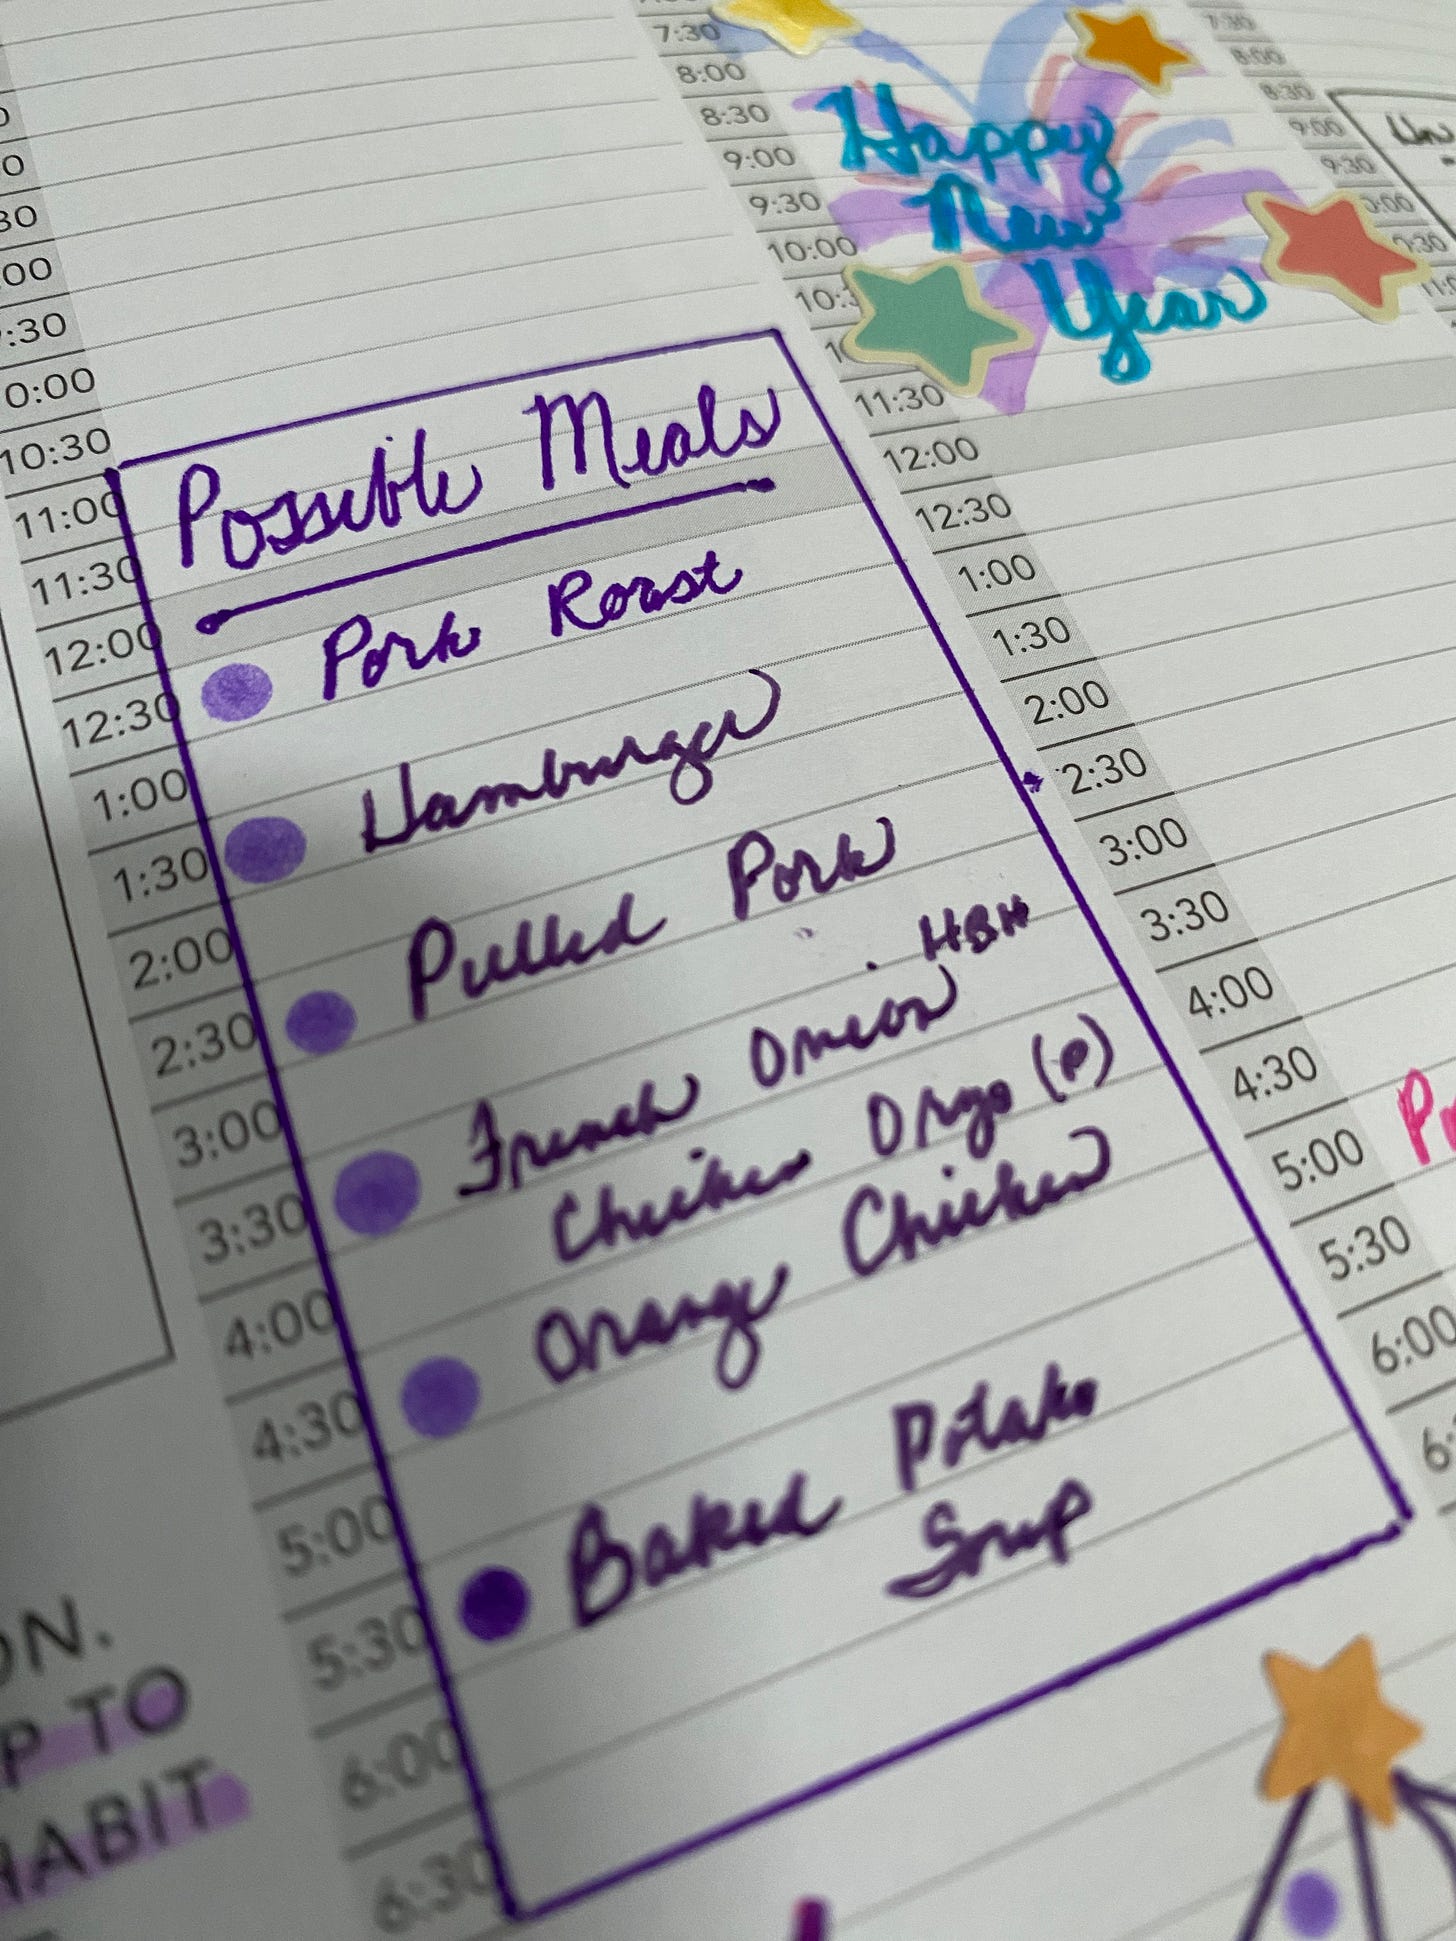 Possible Meals
Pork Roast
Hamburger
Pulled Pork
HBH
French Onion
Chicken Orzo (P)
Orange Chicken
Baked Potato
Soup
10:30
11:00
11:30
12:00
12:30
1:00
1:30
2:00
2:30
3:00
3:30
4:00
4:30
5:00
5:30
6:00
6:30
ON.
P TO
HABIT
Happy
New
Year
7:30
8:00
8:30
9:00
9:30
10:00
11:30
12:00
12:30
1:00
1:30
2:00
2:30
3:00
3:30
4:00
4:30
5:00
5:30
6:00
7:30
8:00
8:30
9:00
9:30